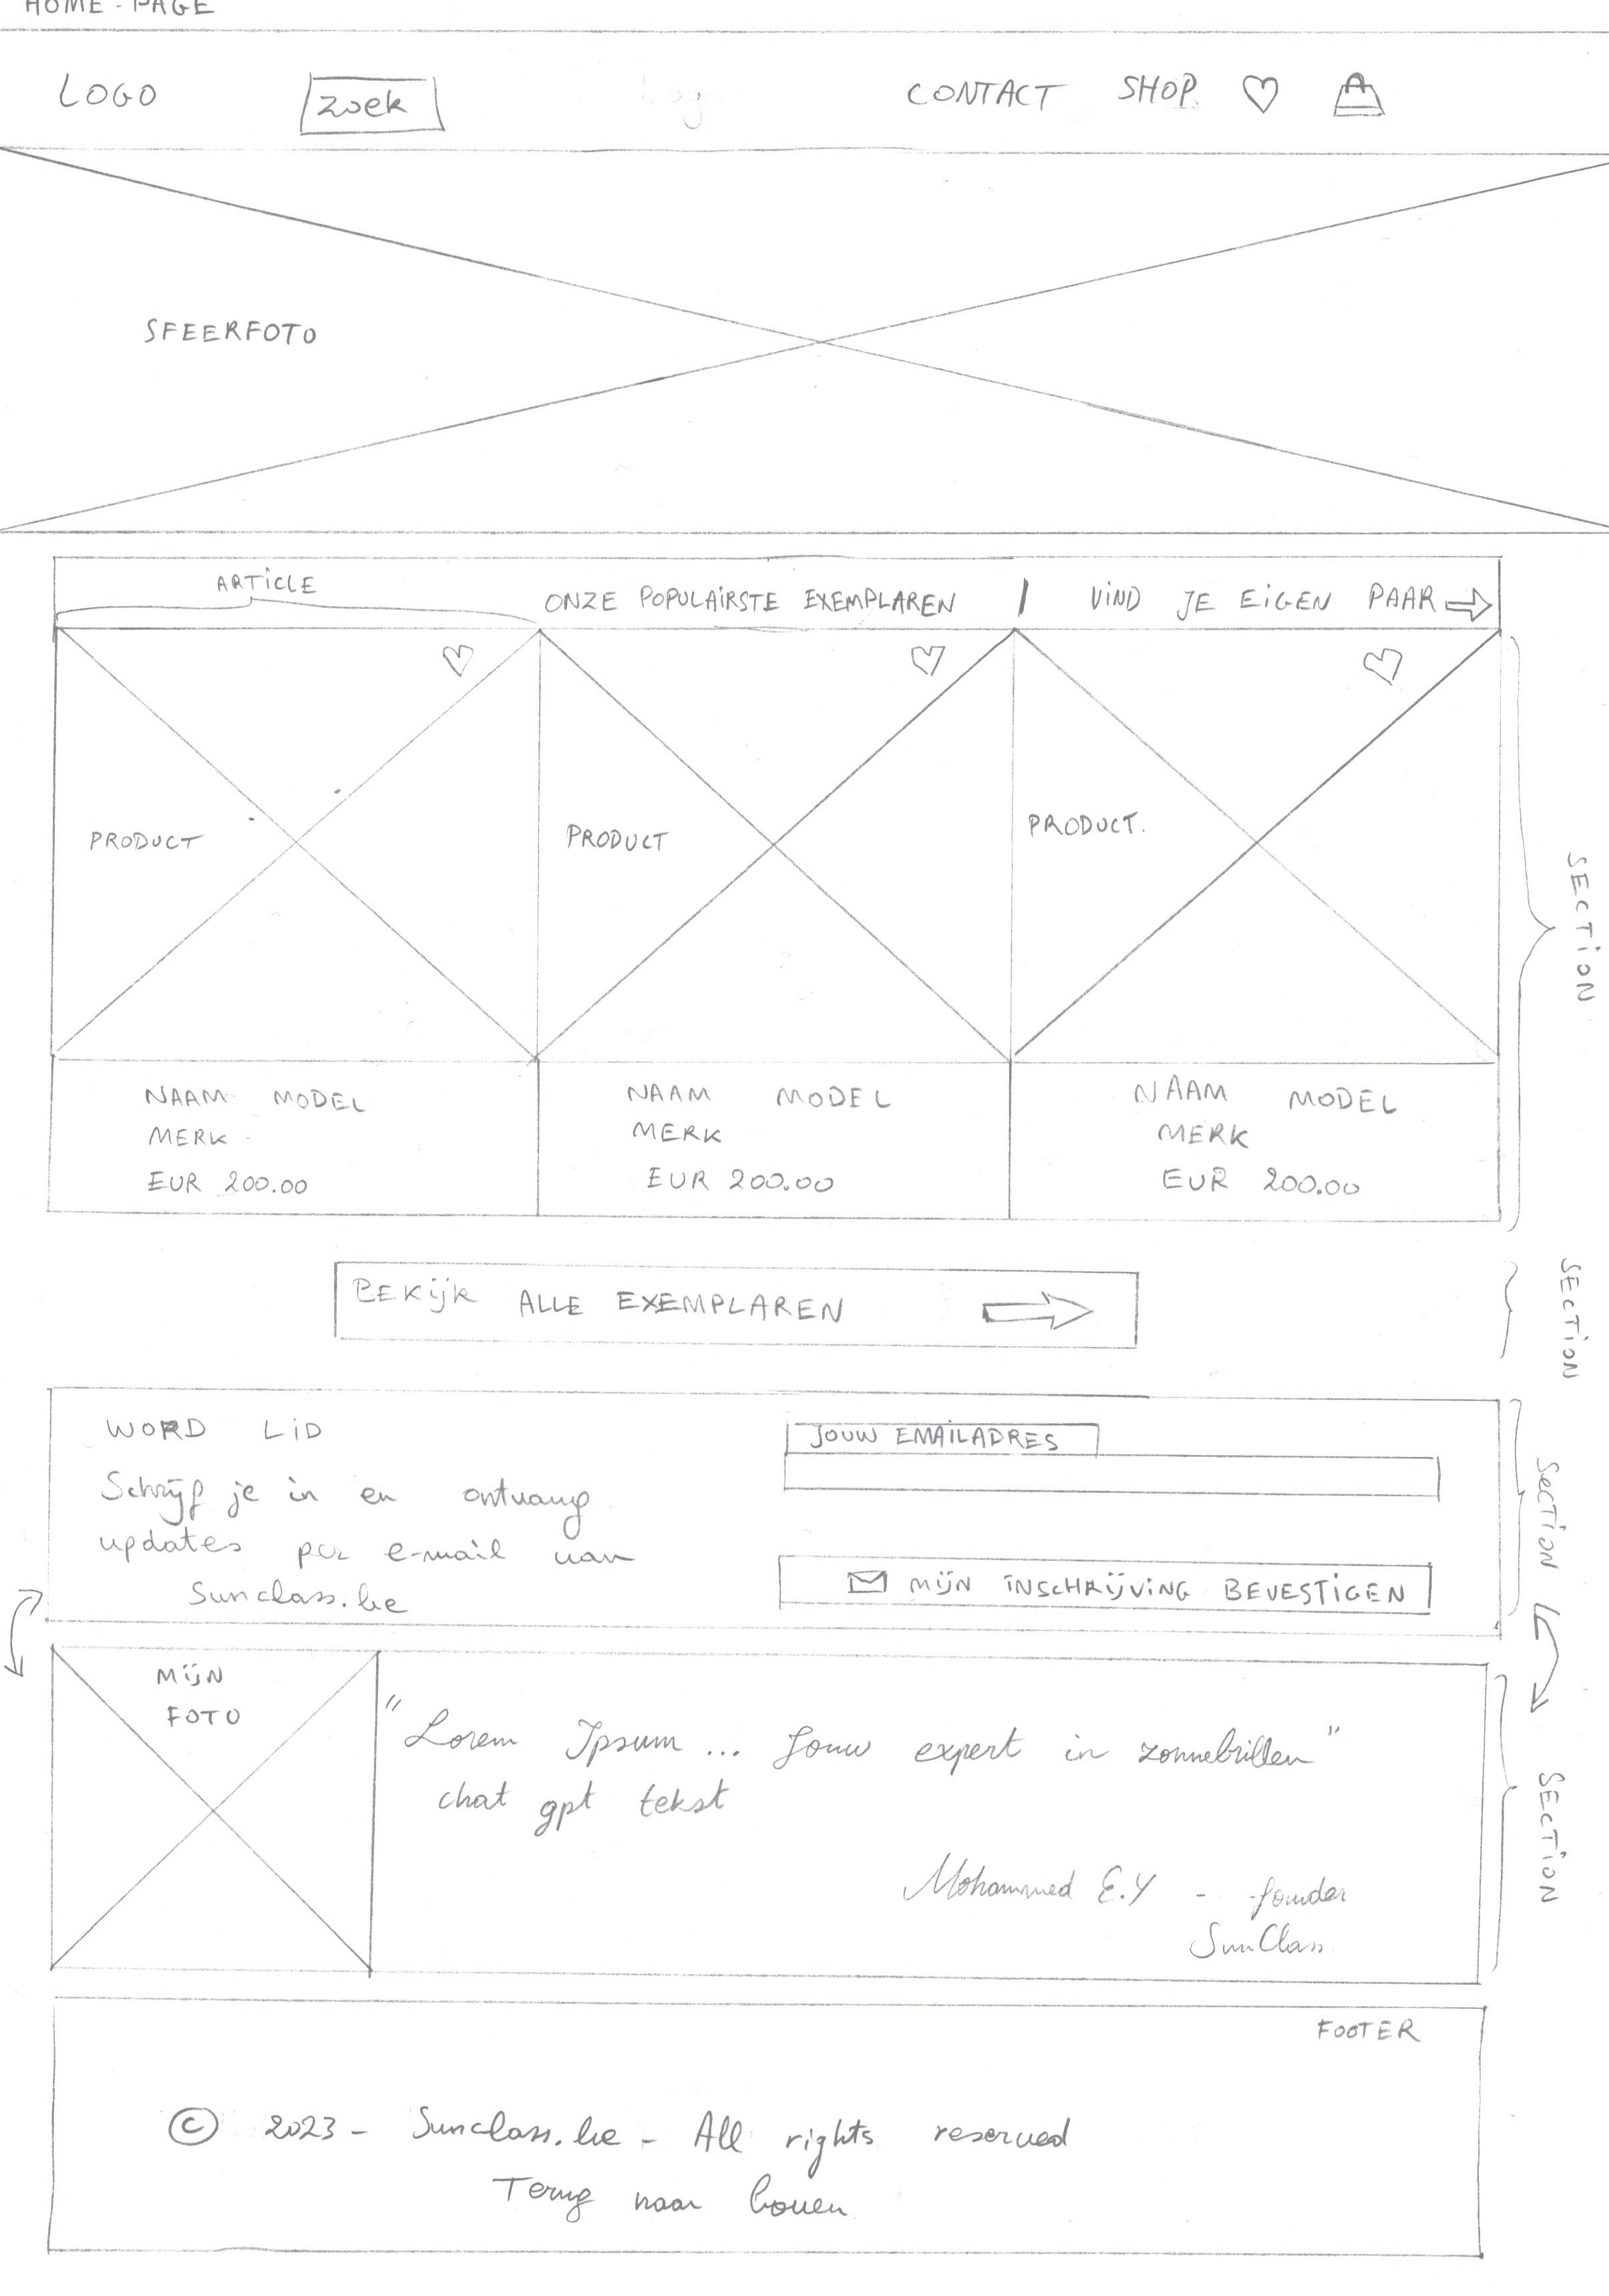 HOME-PAGE
LOGO zoek Logo CONTACT SHOP
SFEERFOTO
ARTICLE
ONZE POPULAIRSTE EXEMPLAREN | VIND JE EIGEN PAAR
PRODUCT PRODUCT PRODUCT.
SECTION
NAAM MODEL NAAM MODEL NAAM MODEL
MERK MERK MERK
EUR 200.00 EUR 200.00 EUR 200.00
BEKIJK ALLE EXEMPLAREN
SECTION
WORD LID
Schrijf je in en ontvang
updates per e-mail van
Sunclass.be
JOUW EMAILADRES
MIJN INSCHRIJVING BEVESTIGEN
SECTION
MIJN
FOTO
"Lorem Ipsum ... Jouw expert in zonnebrillen"
chat gpt tekst
Mohammed E.Y - founder
SunClass
SECTION
FOOTER
© 2023 - Sunclass.be - All rights reserved
Terug naar boven